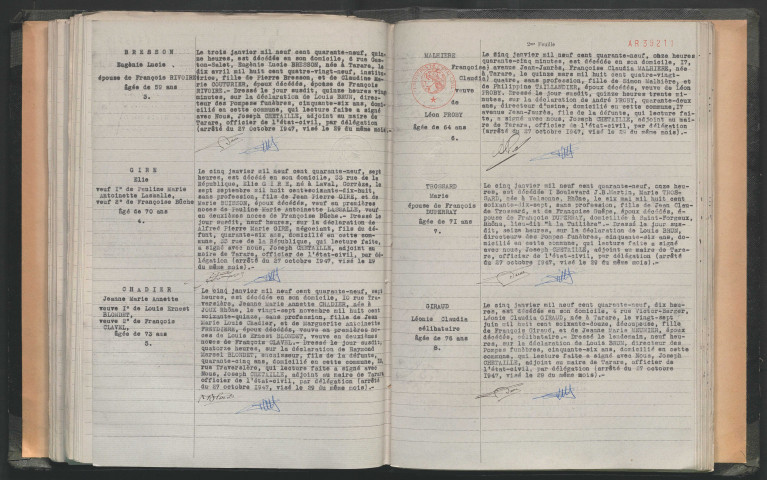 BRESSON
Eugénie Lucie
épouse de François RIVOIRE
Agée de 59 ans
3.
Le trois janvier mil neuf cent quarante-neuf,
heures, est décédée en son domicile,
Eugénie Lucie BRESSON, née à Tarare, le
dix avril mil huit cent quatre-vingt-neuf,
fille de Pierre Bresson, et de Claudine
COUTURIER, époux décédés, épouse de François
RIVOIRE.- Dressé le jour susdit, quinze heures vingt
minutes, sur la déclaration de Louis BRUN, direc-
teur des Pompes Funèbres, cinquante-six ans, domi-
cilié en cette commune, qui lecture faite a signé
avec Nous, Joseph CHETAILLE, adjoint au maire de
Tarare, officier de l'état-civil, par délégation
(arrêté du 27 octobre 1947, visé le 29 du même mois).-
GIRE
Elie
veuf 1° de Pauline Marie
Antoinette Lasealle,
veuf 2° de Françoise Bûche
Agé de 70 ans
4.
Le cinq janvier mil neuf cent quarante-neuf, sept
heures, est décédé en son domicile, 32 rue de la
République, Elie GIRE, né à Laval, Corrèze, le
sept septembre mil huit cent soixante-dix-huit,
sans profession, fils de Jean Pierre GIRE, et de
Marie époux décédés, veuf en premières
noces de Pauline Marie Antoinette LASEALLE, veuf
en deuxièmes noces de Françoise Bûche.- Dressé le
jour susdit, neuf heures, sur la déclaration de
Alfred Pierre Marie GIRE, négociant, fils du dé-
funt, quarante-six ans, domicilié en cette com-
mune, 32 rue de la République, qui lecture faite,
a signé avec nous, Joseph CHETAILLE, adjoint au
maire de Tarare, officier de l'état-civil, par dé-
légation (arrêté du 27 octobre 1947, visé le 29
du même mois).-
CHADIER
Jeanne Marie Annette
veuve 1° de Louis Ernest
BLONDET,
veuve 2° de François
CLAVEL,
Agée de 73 ans
5.
Le cinq janvier mil neuf cent quarante-neuf, sept
heures, est décédée en son domicile, 10 rue Tra-
versière, Jeanne Marie Annette CHADIER, née à
JOUX Rhône, le vingt-sept novembre mil huit cent
soixante-quinze, sans profession, fille de Jean
Marie Louis Chadier, et de Marguerite Antoinette
époux décédés, veuve en premières no-
ces de Louis Ernest BLONDET, veuve en deuxièmes
noces de François CLAVEL.- Dressé le jour susdit,
quatorze heures, sur la déclaration de Raymond
Marcel BLONDET, fils de la défunte,
quarante-cinq ans, domicilié en cette commune, 10
rue Traversière, qui lecture faite a signé avec
Nous, Joseph CHETAILLE, adjoint au maire de Tarare
officier de l'état-civil, par délégation (arrêté
du 27 octobre 1947, visé le 29 du même mois).-
2me Feuille
AR 39211
MALHIERE
Françoise
Claudia
veuve
de
Léon PROBY
Agée de 84 ans
6.
Le cinq janvier mil neuf cent quarante-neuf, onze heures
quarante-cinq minutes, est décédée en son domicile, 17,
avenue Jean-Jaurès, Françoise Claudia MALHIERE, née
à Tarare, le quinze mars mil huit cent
quatre, sans profession, fille de Simon Malhière, et
de Philippine TAILLANDIER, époux décédés, veuve de Léon
PROBY. Dressé le jour susdit, quinze heures trente mi-
nutes, sur la déclaration de André PROBY, quarante-deux
ans, directeur d'usine, domicilié en cette commune, 17
avenue Jean-Jaurès, fils de la défunte, qui lecture fai-
te, a signé avec nous, Joseph CHETAILLE, adjoint au mai-
re de Tarare, officier de l'état-civil, par délégation
(arrêté du 27 octobre 1947, visé le 29 du même mois).-
TROSSARD
Marie
épouse de François
DUPERRAY
Agée de 71 ans
7.
Le cinq janvier mil neuf cent quarante-neuf, onze heu-
res, est décédée 1 Boulevard J.B.Martin, Marie TROS-
SARD, née à Valsonne, Rhône, le six mai mil huit cent
soixante-dix-sept, sans profession, fille de Jean Clau-
de Trossard, et de Françoise époux décédés, é-
pouse de François DUPERRAY, domiciliés à Saint-Forgeux,
Rhône, lieu-dit Dressé le jour sus-
dit, seize heures, sur la déclaration de Louis BRUN,
directeur des Pompes Funèbres, cinquante-six ans, do-
micilié en cette commune, qui lecture faite a signé
avec nous, Joseph CHETAILLE, adjoint au maire de Tara-
re, officier de l'état-civil, par délégation (arrêté
du 27 octobre 1947, visé le 29 du même mois).-
GIRAUD
Léonie Claudia
célibataire
Agée de 76 ans
8.
Le cinq janvier mil neuf cent quarante-neuf, dix heu-
res, est décédée en son domicile, 4 rue Victor-Berger,
Léonie Claudia GIRAUD, née à Tarare, le vingt-sept
juin mil huit cent soixante-douze, fille
de François Giraud, et de Jeanne Marie époux
décédés, célibataire.- Dressé le lendemain, neuf heu-
res, sur la déclaration de Louis BRUN, directeur des
Pompes funèbres, cinquante-six ans, domicilié en cette
commune, qui lecture faite a signé avec nous, Joseph
CHETAILLE, adjoint au maire de Tarare, officier de
l'état-civil, par délégation (arrêté du 27 octobre
1947, visé le 29 du même mois).-